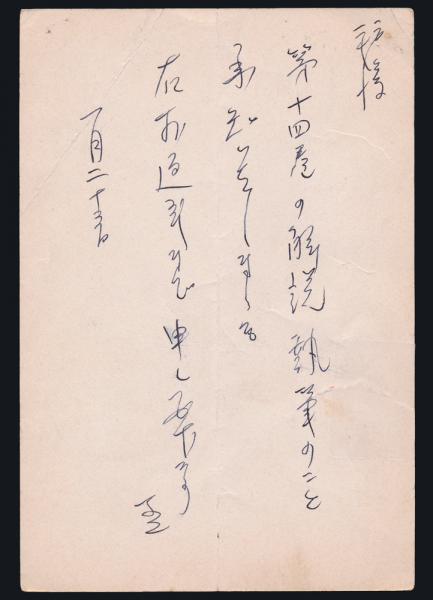 拝復
第十四巻の解説執筆のこと
承知致しました
右お返事まで申し上げます
一月二十五日